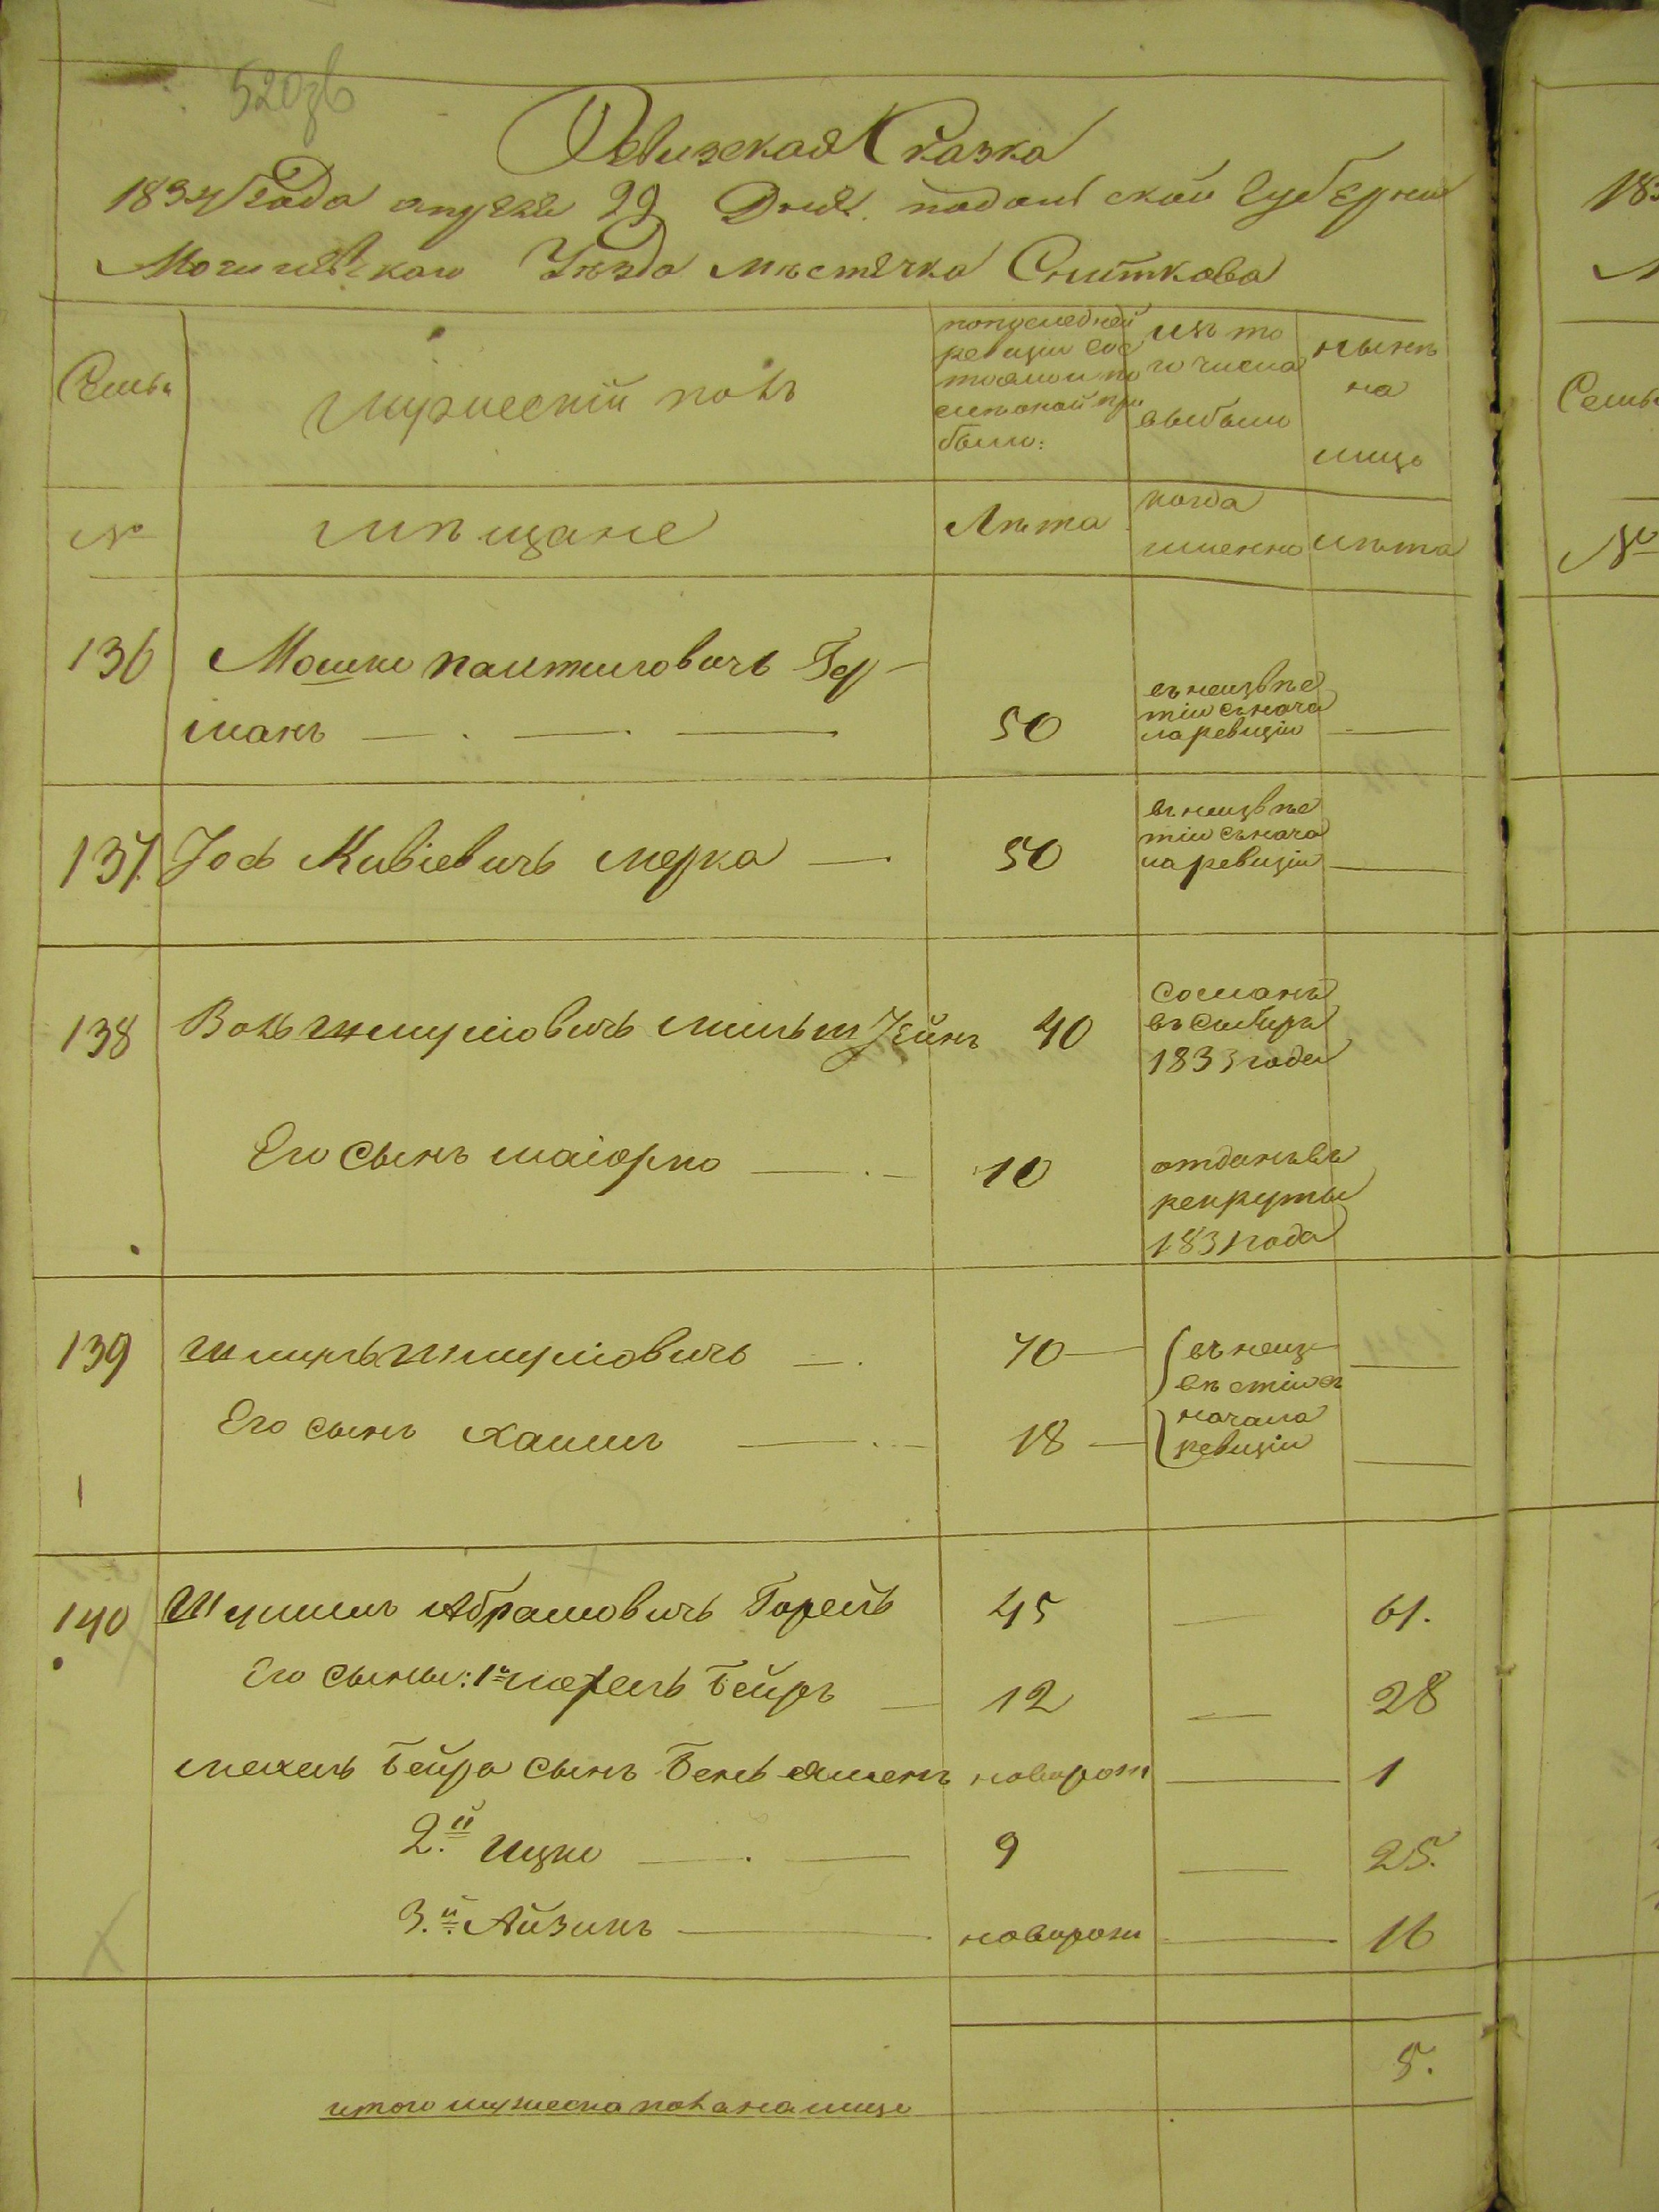 520зв
Ревизская Сказка
1834 года апреля 29 Дня. подольской Губернии
Могилевскаго Уѣзда мѣстечка Сниткова
Семьи
мужеский полъ
попуследней ревизии состояло и после оной прибыло:
изъ того числа выбыло
нынѣ на лицо
№
мѣщане
Лѣта
когда именно
лѣта
136 Мошко Пантиловичъ Гер-
манъ 50 въ неизвѣстіи съ начала ревизіи
137. Іось Кивіевичъ мерка 50 въ неизвѣстіи съ начала ревизіи
138 Воль шмулiовичъ мильштейнъ 40 сосланъ въ Сибирь 1833 года
Его сынъ маіорко 10 отданъ въ рекруты 1831 года
139 шмуль шмулiовичъ 70 въ неизвѣстіи съ
Его сынъ хаимъ 18 начала ревизіи
140 Шулимъ Абрамовичъ Горель 45 61.
Его сыны: 1й мехель Бейръ 12 28
мехель Бейра сынъ Беньяменъ новорож 1
2.й Ицко 9 25.
3.й Айзикъ новорож 16
5.
итого мужеска пола на лицо
18
Семьи
№